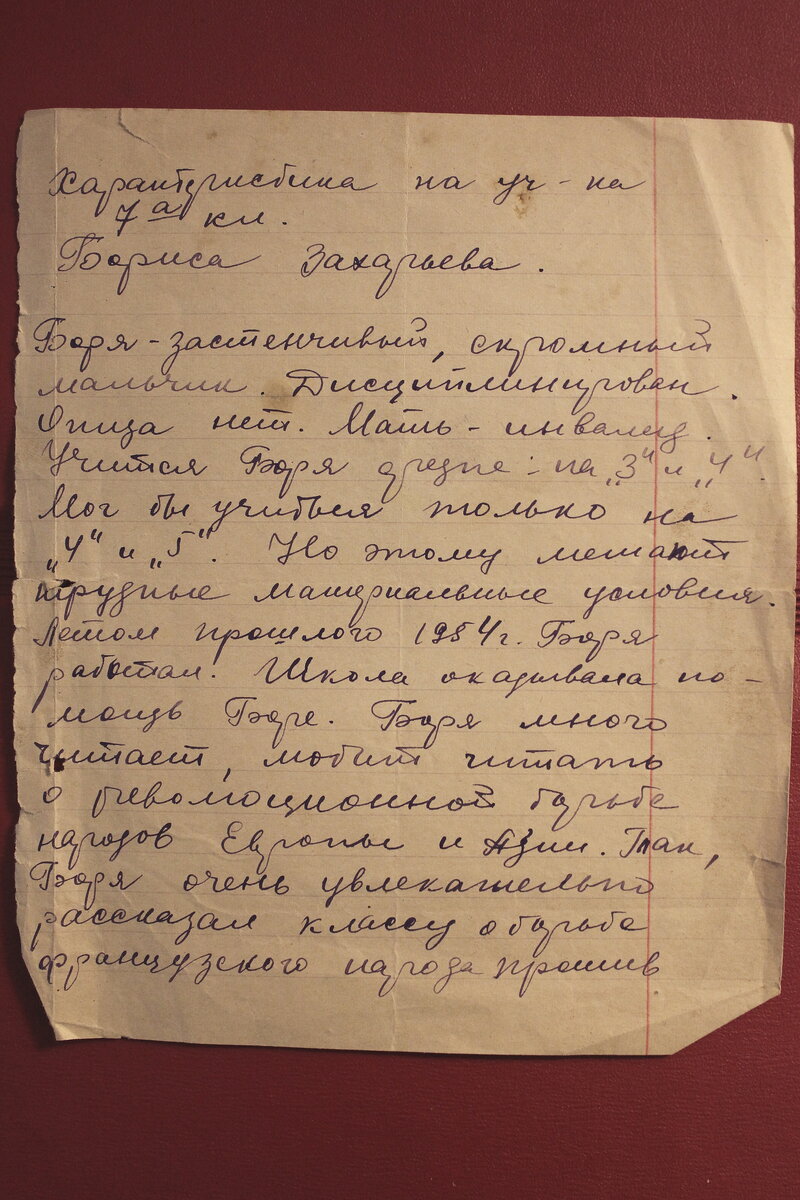 Характеристика на уч-ка
7а кл.
Бориса Захарьева.
Боря - застенчивый, скромный
мальчик. Дисциплинирован.
Отца нет. Мать - инвалид.
Учится Боря средне: на „3" и „4".
Мог бы учиться только на
„4" и „5". Но этому мешают
трудные материальные условия.
Летом прошлого 1954г. Боря
работал. Школа оказывала по-
мощь Боре. Боря много
читает, любит читать
о революционной борьбе
народов Европы и Азии. Так,
Боря очень увлекательно
рассказал классу о борьбе
французского народа против